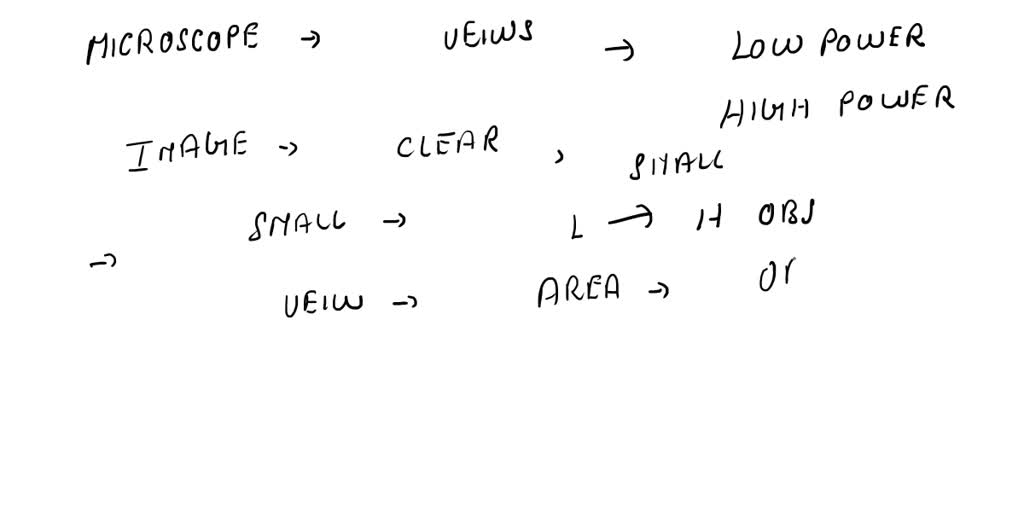 MICROSCOPE → VEIWS → LOW POWER
HIGH POWER
IMAGE → CLEAR , SMALL
SMALL → L → H OBJ
→ VEIW → AREA →